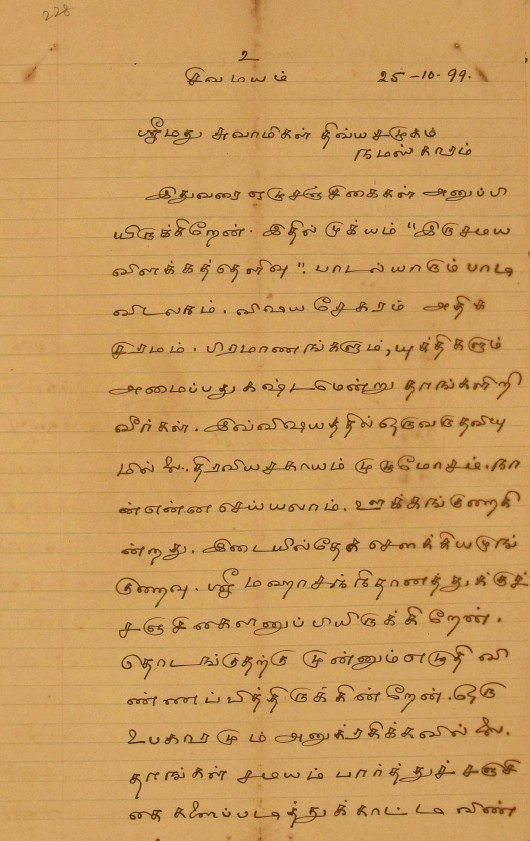 228
௨
சிவமயம் 25-10-99.
ஸ்ரீமது சுவாமிகள் திவ்யசமுகம்
நமஸ்காரம்
இதுவரை ஏழுசஞ்சிகைகள் அனுப்பி
யிருக்கிறேன். இதில் முக்யம் "இருசமய
விளக்கத்தெளிவு". பாடல்யாரும் பாடி
விடலாகம். விஷய சேகரம் அதிக
சிரமம். பிரமாணங்களும், யுக்திகளும்
அமைப்பது கஷ்டமென்று தாங்களறி
வீர்கள். இவ்விஷயத்தில் ஒருவருதவியு
மில்லை. திரவியசகாயம் முழுமோசம். நா
ன்என்ன செய்யலாம். ஊக்கங்குறைகி
ன்றது. இடையில்தேக சௌக்கியமுங்
குறைவு. ஸ்ரீ மஹாசந்நிதானத்துக்குச்
சஞ்சிகைளனுப்பியிருக்கிறேன்.
தொடங்குதற்கு முன்னும்எழுதி வி
ண்ணப்பித்திருக்கின்றேன். ஒரு
உபகாரமும் அனுக்ரகிக்கவில்லை.
தாங்கள் சமயம் பார்த்துச் சஞ்சி
கைகளைப்படித்துக்காட்டி விண்